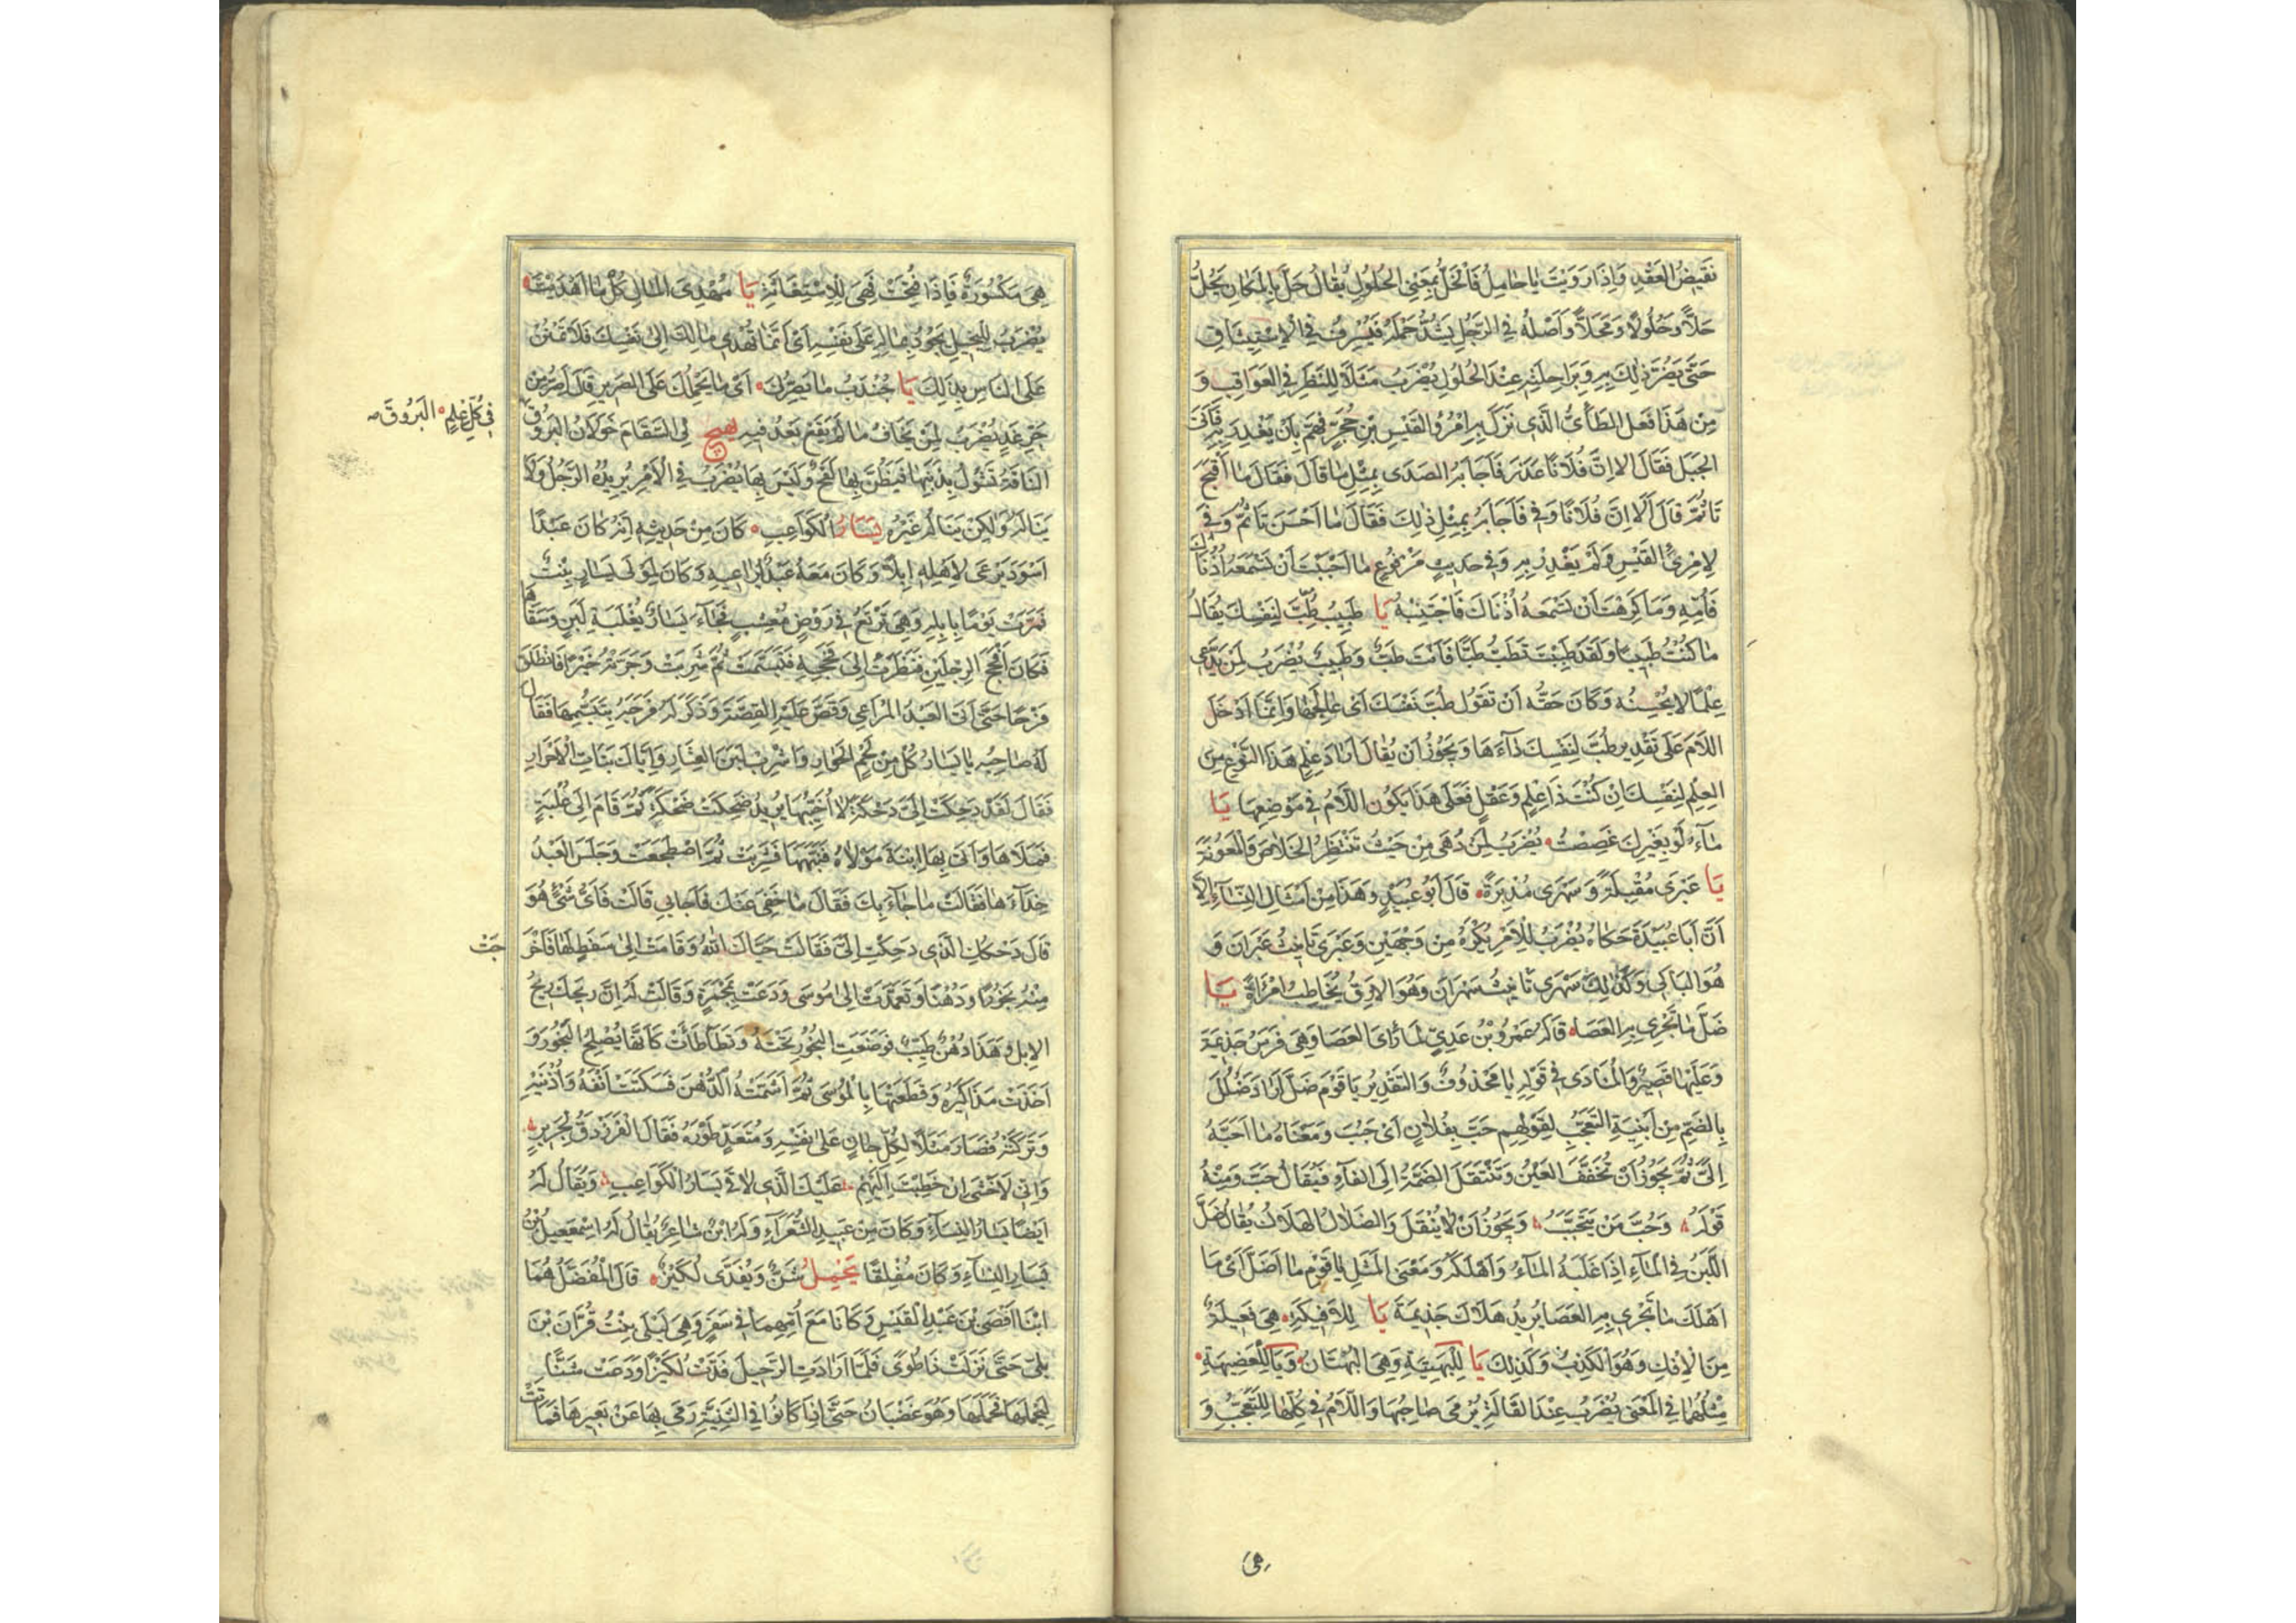 نَقيضُ العَقْدِ وَاِذَا رَوَيْتَ يَا حَامِلُ فَالْحَلُّ بِمَعْنَى الحُلُولِ يُقَالُ حَلَّ بِالْمَكَانِ يَحُلُّ
حَلًّا وَحُلُولًا وَمَحَلًّا وَاَصْلُهُ فِي الرَّجُلِ يَشُدُّ حَمْلَهُ فَيُسْرِفُ فِي الْاِسْتِيثَاقِ
حَتَّى يَضُرَّ ذٰلِكَ بِهِ وَبِرَاحِلَتِهِ عِنْدَ الحُلُولِ يُضْرَبُ مَثَلًا لِلنَّظَرِ فِي العَوَاقِبِ وَ
مِنْ هَذَا فَعَلَ الطَّائِيُّ الَّذِي نَزَلَ بِهِ امْرُؤُ القَيْسِ بْنِ حُجْرٍ فَهَمَّ بِاَنْ يَغْدِرَ بِهِ فَاَتَى
الجَبَلَ فَقَالَ اَلا اِنَّ فُلَانًا غَدَرَ فَاَجَابَهُ الصَّدَى بِمِثْلِ مَا قَالَ فَقَالَ مَا اَقْبَحَ
تَا ثُمَّ قَالَ اَلَا اِنَّ فُلَانًا وَفَى فَاَجَابَهُ بِمِثْلِ ذٰلِكَ فَقَالَ مَا اَحْسَنَ تَا ثُمَّ وَفَى
لِامْرِئِ القَيْسِ وَلَمْ يَغْدِرْ بِهِ وَفِي حَدِيثٍ مَرْفُوعٍ مَا اَحْبَبْتَ اَنْ تَسْمَعَهُ اُذُنَاكَ
فَاْتِهِ وَمَا كَرِهْتَ اَنْ تَسْمَعَهُ اُذُنَاكَ فَاجْتَنِبْهُ يَا طَبِيبُ طِبَّ لِنَفْسِكَ يُقَالُ
مَا كُنْتُ طَبِيبًا وَلَقَدْ طَبِبْتَ تَطَبُّ طِبًّا فَاَنْتَ طَبٌّ وَطَبِيبٌ يُضْرَبُ لِمَنْ يَدَّعِي
عِلْمًا لا يُحْسِنُهُ وَكَانَ حَقُّهُ اَنْ تَقُولَ طُبَّ نَفْسَكَ اَىْ عَالِجْهَا وَاِنَّمَا اَدْخَلَ
اللَّامَ عَلَى تَقْدِيرِ طُبَّ لِنَفْسِكَ دَاءَهَا وَيَجُوزُ اَنْ يُقَالَ اَرَادَ عِلْمَ هَذَا النَّوْعِ مِنَ
العِلْمِ لِنَفْسِكَ اِنْ كُنْتَ ذَا عِلْمٍ وَعَقْلٍ فَعَلَى هَذَا يَكُونُ اللَّامُ فِي مَوْضِعِهَا يَا
مَاءُ لَوْ بِغَيْرِكَ غَصِصْتُ يُضْرَبُ لِمَنْ دُهِيَ مِنْ حَيْثُ يَنْتَظِرُ الخَلَاصَ وَالْمَعُونَةَ
يَا عَبْرَى مُقْبِلَةً وَسَهْرَى مُدْبِرَةً قَالَ اَبُو عُبَيْدٍ وَهَذَا مِنْ اَمْثَالِ النِّسَاءِ اِلَّا
اَنَّ اَبَا عُبَيْدَةَ حَكَاهُ يُضْرَبُ لِلْاَمْرِ يُكْرَهُ مِنْ وَجْهَيْنِ وَعَبْرَى تَانِيثُ عَبْرَانَ وَ
هُوَ البَاكِي وَكَذٰلِكَ سَهْرَى تَانِيثُ سَهْرَانَ وَهُوَ الاَرِقُ يُخَاطِبُ امْرَاَةً يَا
ضَلَّ مَا تَجْرِي بِهِ العَصَا قَالَهُ عَمْرُو بْنُ عَدِيٍّ لَمَّا رَاَى العَصَا وَهِيَ فَرَسُ جَذِيمَةَ
وَعَلَيْهَا قَصِيرٌ وَالْمُنَادَى فِي قَوْلِهِ يَا مَحْذُوفٌ وَالتَّقْدِيرُ يَا قَوْمِ ضَلَّ اَرَادَ ضَلُلَ
بِالضَّمِّ مِنْ اَبْنِيَةِ التَّعَجُّبِ لِقَوْلِهِمْ حَبَّ بِفُلَانٍ اَىْ حَبُبَ وَمَعْنَاهُ مَا اَحَبَّهُ
اِلَيَّ ثُمَّ يَجُوزُ اَنْ تُخَفَّفَ العَيْنُ وَتُنْتَقَلَ الضَّمَّةُ اِلَى الفَاءِ فَيُقَالُ حُبَّ وَمِنْهُ
قَوْلُهُ وَحُبَّ مَنْ يَتَحَبَّبُ وَيَجُوزُ اَنْ لَا يُنْقَلَ وَالضَّلَالُ الهَلَاكُ يُقَالُ ضَلَّ
اللَّبَنُ فِي الْمَاءِ اِذَا غَلَبَهُ الْمَاءُ وَاَهْلَكَهُ وَمَعْنَى الْمَثَلِ يَا قَوْمِ مَا اَضَلَّ اَىْ مَا
اَهْلَكَ مَا تَجْرِي بِهِ العَصَا يُرِيدُ هَلَاكَ جَذِيمَةَ يَا لِلْاَفِيكَةِ هِيَ فَعِيلَةٌ
مِنَ الْاِفْكِ وَهُوَ الكَذِبُ وَكَذٰلِكَ يَا لِلْبَهِيتَةِ وَهِيَ البُهْتَانُ وَيَا لِلْعَضِيهَةِ
مِثْلُهُمَا فِي الْمَعْنَى يُضْرَبُ عِنْدَ الْمَقَالَةِ يُرْمَى صَاحِبُهَا وَاللَّامُ فِي كُلِّهَا لِلتَّعَجُّبِ وَ
هِيَ
هِيَ مَكْسُورَةٌ فَاِذَا فُتِحَتْ فَهِيَ لِلْاِسْتِغَاثَةِ يَا مُهْدِيَ الْمَالِ كُلْ مَا اَهْدَيْتَ
يُضْرَبُ لِلْبَخِيلِ يَجُودُ بِمَالِهِ عَلَى نَفْسِهِ اَىْ اِنَّمَا تُهْدِي مَالَكَ اِلَى نَفْسِكَ فَلَا تَمْنُنْ
عَلَى النَّاسِ بِذٰلِكَ يَا جُنْدَبُ مَا يُصِرُّكَ اَىْ مَا يَحْمِلُكَ عَلَى الصَّرِيرِ قَالَ اَصِرُّ مِنْ
حَرِّ غَدٍ يُضْرَبُ لِمَنْ يَخَافُ مَا لَمْ يَقَعْ بَعْدُ فِيهِ يُهَيِّجُ لِيَ السَّقَامَ خَوَلَانُ البَرُوقِ
فِي كُلِّ عَلَمٍ البَرُوقَ
النَّاقَةُ تَشُولُ بِذَنَبِهَا فَيُظَنُّ بِهَا لَقَحٌ وَلَيْسَ بِهَا يُضْرَبُ فِي الْاَمْرِ يُرِيدُهُ الرَّجُلُ وَلَا
يَنَالُهُ وَلٰكِنْ يَنَالُهُ غَيْرُهُ يَسَارُ الكَوَاعِبِ كَانَ مِنْ حَدِيثِهِ اَنَّهُ كَانَ عَبْدًا
اَسْوَدَ يَرْعَى لِاَهْلِهِ اِبِلًا وَكَانَ مَعَهُ عَبْدٌ يُرَاعِيهِ وَكَانَ لِمَوْلَى يَسَارٍ بِنْتٌ
فَمَرَّتْ يَوْمًا بِاِبِلِهِ وَهِيَ تَرْتَعُ فِي رَوْضٍ مُعْشِبٍ فَجَاءَ يَسَارٌ بِعُلْبَةِ لَبَنٍ وَسَقَاهَا
فَكَانَ اَفْحَجَ الرِّجْلَيْنِ فَنَظَرَتْ اِلَى فَحَجِهِ فَتَبَسَّمَتْ ثُمَّ شَرِبَتْ وَجَزَتْهُ خَيْرًا فَانْطَلَقَ
فَرِحًا حَتَّى اَتَى العَبْدَ الْمُرَاعِي وَقَصَّ عَلَيْهِ القِصَّةَ وَذَكَرَ لَهُ فَرَحَهُ بِتَبَسُّمِهَا فَقَالَ
لَهُ صَاحِبُهُ يَا يَسَارُ كُلْ مِنْ لَحْمِ الحُوَارِ وَاشْرَبْ لَبَنَ العِشَارِ وَاِيَّاكَ بَنَاتِ الْاَحْرَارِ
فَقَالَ لَقَدْ دَحِكَتْ اِلَيَّ دَحْكَةً لَا اُخَيِّبُهَا يُرِيدُ ضَحِكَتْ ضَحْكَةً ثُمَّ قَامَ اِلَى عُلْبَةٍ
فَمَلَاَهَا وَاَتَى بِهَا ابْنَةَ مَوْلَاهُ فَنَبَّهَهَا فَشَرِبَتْ ثُمَّ اضْطَجَعَتْ وَجَلَسَ العَبْدُ
حِذَاءَهَا فَقَالَتْ مَا جَاءَ بِكَ فَقَالَ مَا خَفِيَ عَنْكِ مَا جَاءَ بِي قَالَتْ فَاَىُّ شَيْءٍ هُوَ
قَالَ دَحْكُكِ الَّذِي دَحِكْتِ اِلَيَّ فَقَالَتْ حَيَّاكَ اللّٰهُ وَقَامَتْ اِلَى سَفَطٍ لَهَا فَاَخْرَ
جَتْ
مِنْهُ بَخُورًا وَدُهْنًا وَتَعَمَّدَتْ اِلَى مُوسَى وَدَعَتْ بِمِجْمَرَةٍ وَقَالَتْ لَهُ اِنَّ رِيحَكَ رِيحُ
الاِبِلِ وَهَذَا دُهْنٌ طَيِّبٌ فَوَضَعَتِ البَخُورَ تَحْتَهُ وَتَطَاْطَاَتْ كَاَنَّهَا تُصْلِحُ البَخُورَ وَ
اَخَذَتْ مَذَاكِيرَهُ وَقَطَعَتْهَا بِالْمُوسَى ثُمَّ اَشَمَّتْهُ الدُّهْنَ فَسَلَتَتْ اَنْفَهُ وَاُذُنَيْهِ
وَتَرَكَتْهُ فَصَارَ مَثَلًا لِكُلِّ جَانٍ عَلَى نَفْسِهِ وَمُتَعَدٍّ طَوْرَهُ فَقَالَ الفَرَزْدَقُ لِجَرِيرٍ
وَاِنِّي لَاَخْشَى اِنْ خَطَبْتَ اِلَيْهِمُ عَلَيْكَ الَّذِي لَاقَى يَسَارُ الْكَوَاعِبِ وَيُقَالُ لَهُ
اَيْضًا يَسَارُ النِّسَاءِ وَكَانَ مِنْ عَبِيدِ الشُّعَرَاءِ وَلَهُ ابْنٌ شَاعِرٌ يُقَالُ لَهُ اِسْمَعِيلُ بْنُ
يَسَارِ النِّسَاءِ وَكَانَ مُفْلِقًا يَحْمِلُ شَنٌّ وَيُفَدَّى لُكَيْزٌ قَالَ الْمُفَضَّلُ هُمَا
ابْنَا اَفْصَى بْنِ عَبْدِ القَيْسِ وَكَانَا مَعَ اُمِّهِمَا فِي سَفَرٍ وَهِيَ لَيْلَى بِنْتُ قُرَّانَ بْنِ
بَلِيٍّ حَتَّى نَزَلَتْ ذَا طُوًى فَلَمَّا اَرَادَتِ الرَّحِيلَ فَدَّتْ لُكَيْزًا وَدَعَتْ شَنًّا
لِيَحْمِلَهَا فَحَمَلَهَا وَهُوَ غَضْبَانُ حَتَّى اِذَا كَانُوا فِي الثَّنِيَّةِ رَمَى بِهَا عَنْ بَعِيرِهَا فَمَاتَتْ